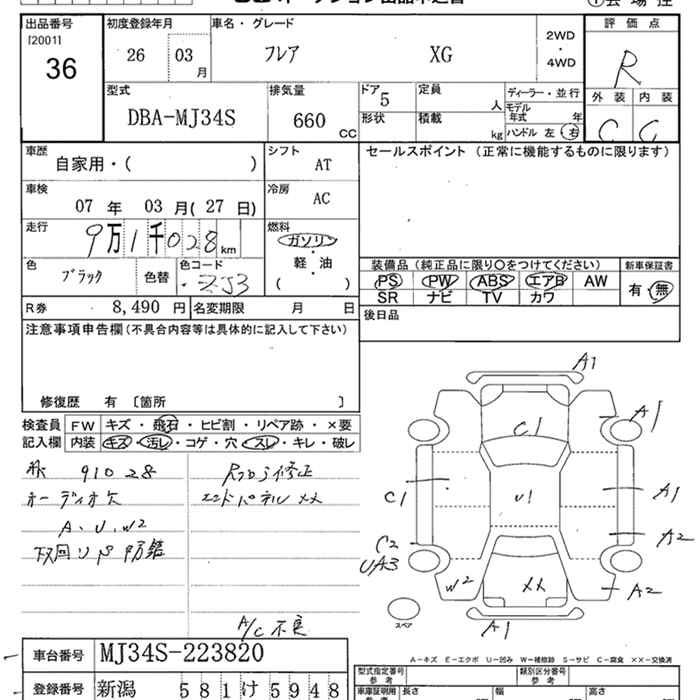 出品番号 初度登録年月 車名・グレード 2WD ・ 4WD 評価点
[2001]
36 26 03月 フレア XG R
型式 排気量 ドア 定員 ディーラー・並行 外装 内装
DBA-MJ34S 660CC 5 人 モデル年式 年 C C
形状 積載 kg ハンドル 左 右
車歴 シフト セールスポイント (正常に機能するものに限ります)
自家用・( ) AT
車検 冷房
07年 03月(27日) AC
走行 燃料
9万1千028km ガソリン
軽・油
( )
色 色コード 装備品 (純正品に限り○をつけてください) 新車保証書
ブラック 色替 ZJ3 PS PW ABS エアB AW 有・無
SR ナビ TV カワ
R券 8,490円 名変期限 月 日 後日品
注意事項申告欄(不具合内容等は具体的に記入して下さい)
修復歴 有 〔箇所 〕
検査員記入欄 FW キズ・飛石・ヒビ割・リペア跡・×要
内装 キズ・汚レ・コゲ・穴・スレ・キレ・破レ
91028
オーディオ欠 エンドパネル××
A.U.W2
下回りP防錆
A/C不良
A1
A1
C1
C1
U1
A1
C2
A2
UA3
W2
××
A2
A1
スペア
車台番号 MJ34S-223820
A-キズ E-エクボ U-凹み W-補修跡 S-サビ C-腐食 ××-交換済
登録番号 新潟 581け5948
型式指定番号 類別区分番号
車庫証明用 長さ 幅 高さ
参考